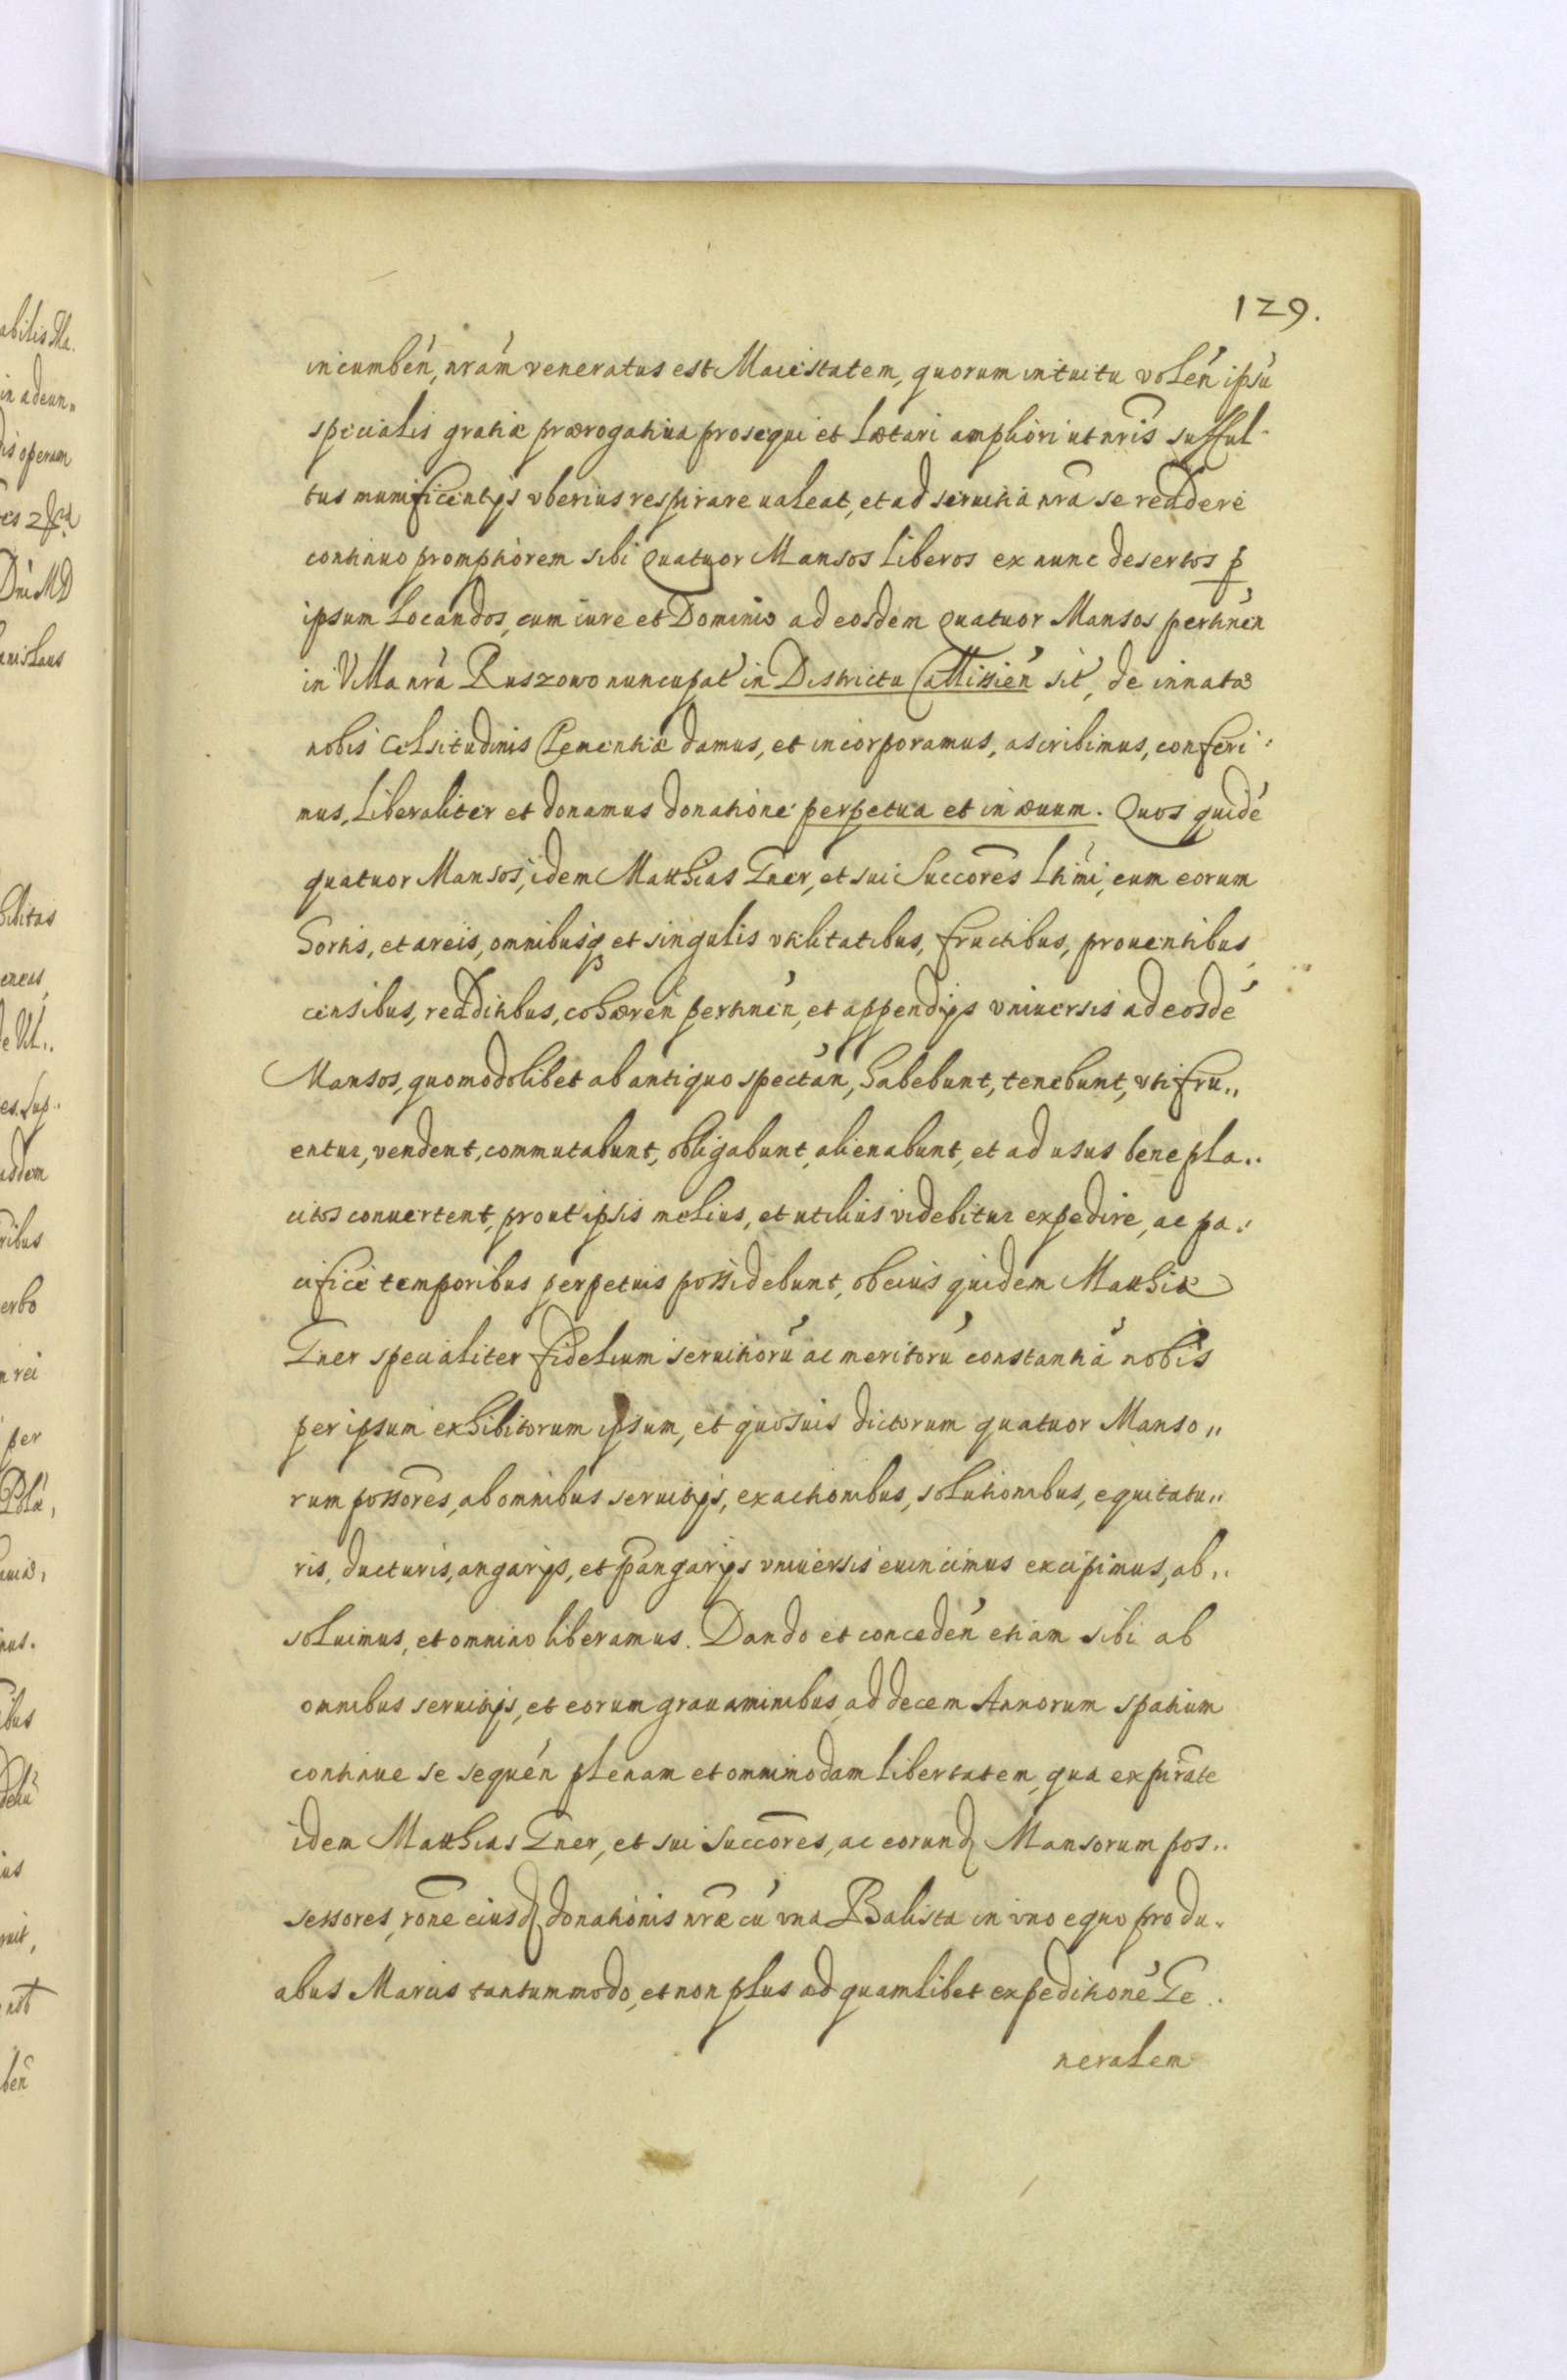 129.
incumbeń, nrám veneratus est Maiestatem, quorum intuitu voleń ipsú
specialis gratiæ prærogatiua prosequi et lætari ampliori ut nris sufful-
tus munificentijs vberius respirare ualeat, et ad seruitia nra se reddere
continuo promptiorem sibi quatuor Mansos liberos ex nunc desertos p
ipsum locandos, cum iure et Dominio ad eosdem quatuor Mansos pertineń
in Villa nrá Ruszowo nuncupat́ in Districtu Callissień sit́, de innata
nobis Celsitudinis Clementiæ damus, et incorporamus, ascribimus, conferi:
mus, liberaliter et donamus donatione perpetua et in æuum. Quos quidé
quatuor Mansos, idem Matthias Gner, et sui Succores ltimi, cum eorum
hortis, et areis, omnibusq et singulis vtilitatibus, fructibus, prouentibus,
censibus, redditibus, cohæreń pertineń, et appendijs vniuersis ad eosdé
Mansos, quomodolibet ab antiquo spectań, habebunt, tenebunt, vtifru„
entur, vendent, commutabunt, obligabunt, alienabunt, et ad usus benepla„
citos conuertent, prout ipsis melius, et utilius videbitur expedire, ac pa„
cifice temporibus perpetuis possidebunt, ob cuius quidem Matthiæ
Gner specialiter fidelium seruitiorú ac meritorú constantiá nobis
per ipsum exhibitorum ipsum, et quosuis dictorum quatuor Manso„
rum possores, ab omnibus seruitijs, exactionibus, solutionibus, equitatu„
ris, ducturis, angarijs, et pangarijs vniuersis euincimus excipimus, ab„
soluimus, et omnino liberamus. Dando et concedeń etiam sibi ab
omnibus seruitijs, et eorum grauaminibus, ad decem Annorum spatium
continue se sequeń plenam et omnimodam libertatem, qua expirate
idem Matthias Gner, et sui Succores, ac eorund Mansorum pos„
sessores, rone eiusd donationis nræ cú vna Balista in vno equo pro du„
abus Marcis tantummodo, et non plus ad quamlibet expeditioné Ge„
neralem